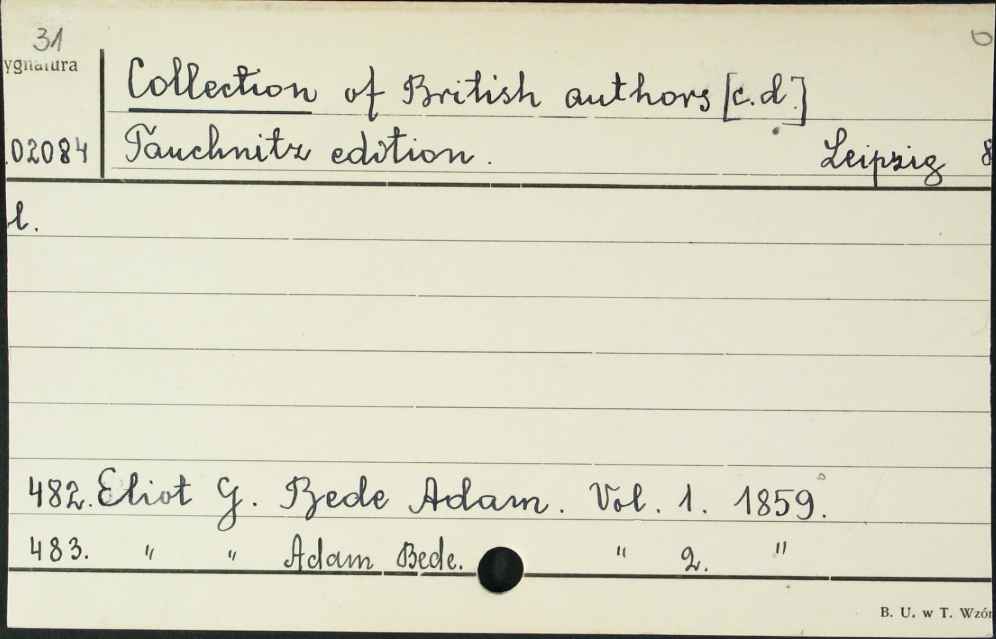 31
ygnatura
Collection of British authors [c.d.]
02084
Tauchnitz edition. Leipzig 8
l.
482. Eliot G. Bede Adam. Vol. 1. 1859.
483. " " Adam Bede. " 2. "
B. U. w T. Wzór